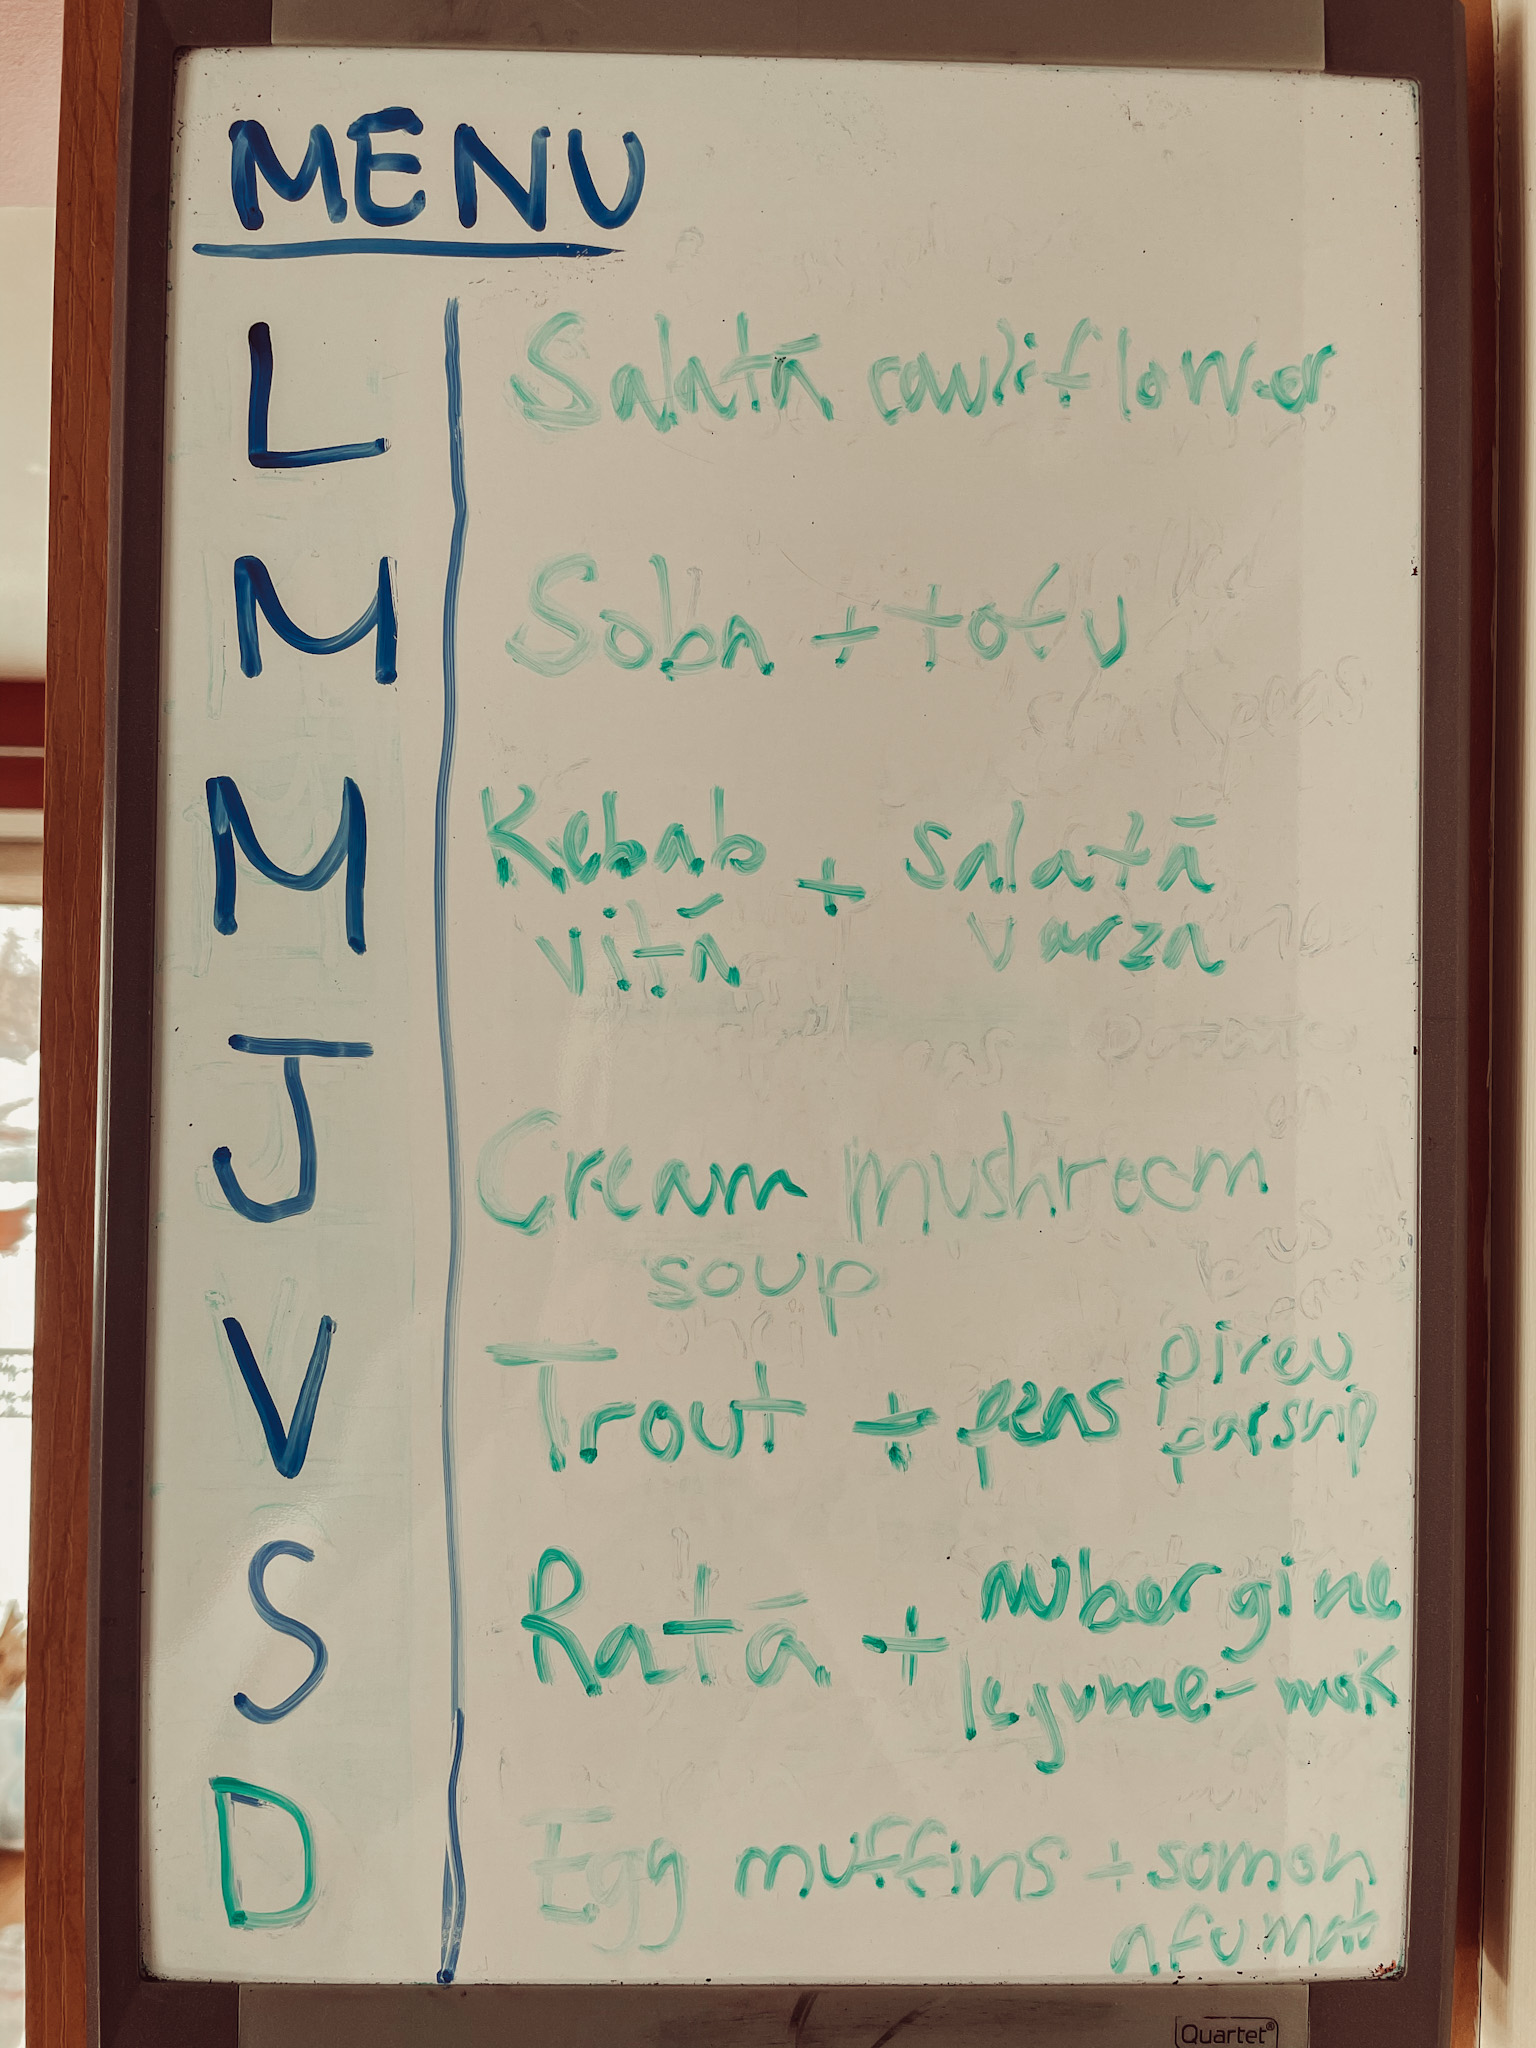 MENU
L Salată cauliflower
M Soba + tofu
M Kebab + salată
vită varza
J Cream mushroom
soup
V Trout + peas pireu
parsnip
S Rată + aubergine
legume-wok
D Egg muffins + somon
afumat
Quartet®